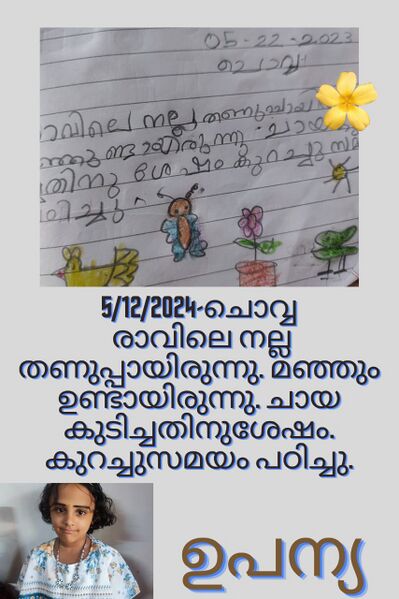 05-22-2023
ചൊവ്വ
രാവിലെ നല്ല തണുപ്പായി
ശേഷം കുറച്ചു സമ
5/12/2024-ചൊവ്വ
രാവിലെ നല്ല
തണുപ്പായിരുന്നു. മഞ്ഞും
ഉണ്ടായിരുന്നു. ചായ
കുടിച്ചതിനുശേഷം.
കുറച്ചുസമയം പഠിച്ചു.
ഉപന്യ